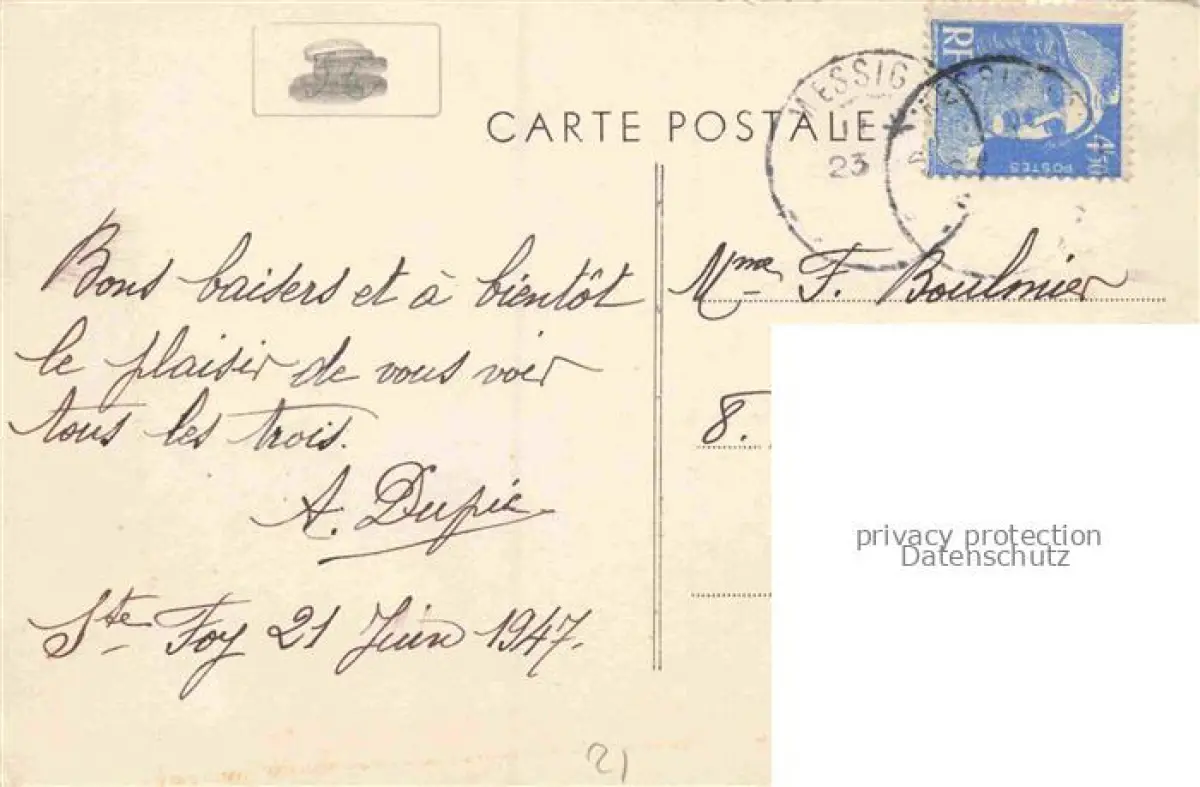 CARTE POSTALE
MESSIG
23
RF
POSTES
4f50
Bons baisers et à bientôt
le plaisir de vous voir
tous les trois.
A. Dupic
Ste Foy 21 Juin 1947.
Mme F. Boulmier
8.
privacy protection
Datenschutz
21